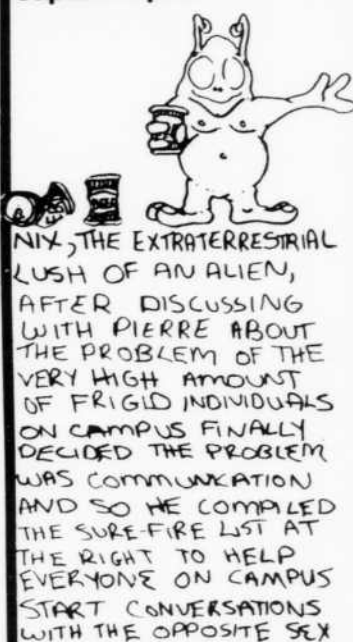 NIX, THE EXTRATERRESTRIAL
LUSH OF AN ALIEN,
AFTER DISCUSSING
WITH PIERRE ABOUT
THE PROBLEM OF THE
VERY HIGH AMOUNT
OF FRIGID INDIVIDUALS
ON CAMPUS FINALLY
DECIDED THE PROBLEM
WAS COMMUNICATION
AND SO HE COMPILED
THE SURE-FIRE LIST AT
THE RIGHT TO HELP
EVERYONE ON CAMPUS
START CONVERSATIONS
WITH THE OPPOSITE SEX